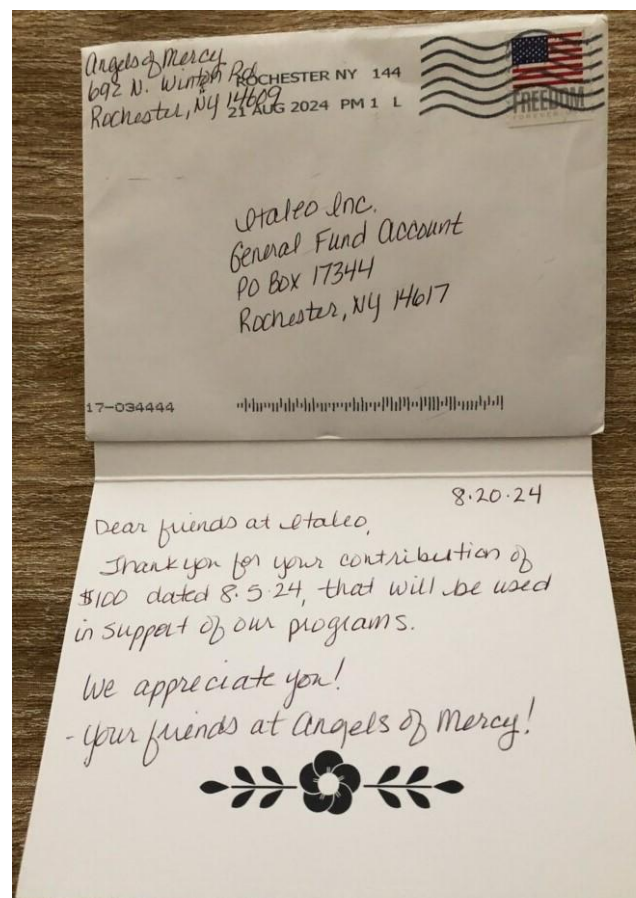 Angels of Mercy
692 N. Winton Rd
Rochester, NY 14609
ROCHESTER NY 144
21 AUG 2024 PM 1 L
FREEDOM
FOREVER
Italeo Inc.
General Fund Account
PO Box 17344
Rochester, NY 14617
17-034444
8.20.24
Dear friends at Italeo,
Thank you for your contribution of
$100 dated 8.5.24, that will be used
in support of our programs.
We appreciate you!
- Your friends at Angels of Mercy!